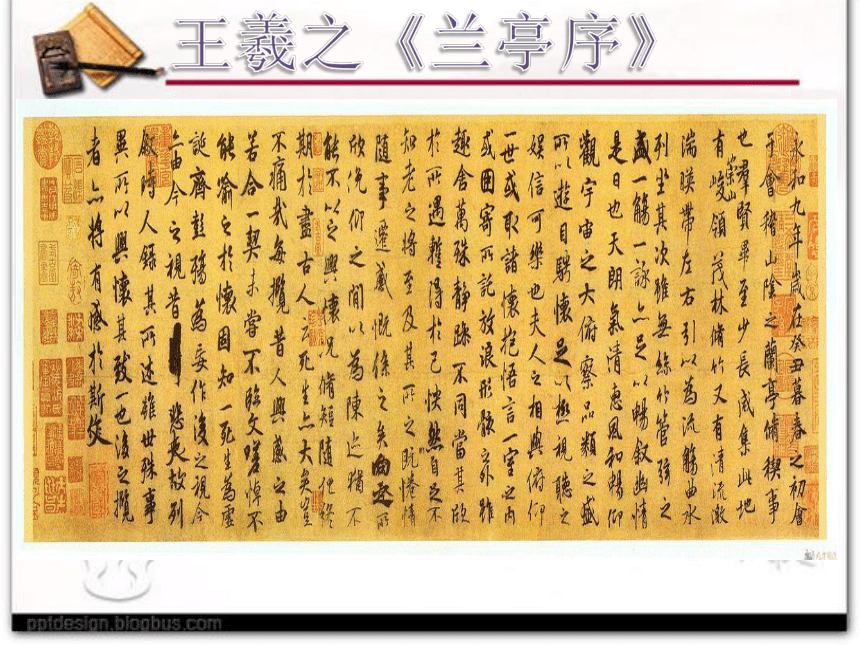 王羲之《兰亭序》
永和九年歲在癸丑暮春之初會
于會稽山陰之蘭亭脩稧事
也羣賢畢至少長咸集此地
有崇山峻領茂林脩竹又有清流激
湍暎帶左右引以為流觴曲水
列坐其次雖無絲竹管弦之
盛一觴一詠亦足以暢敘幽情
是日也天朗氣清惠風和暢仰
觀宇宙之大俯察品類之盛
所以遊目騁懷足以極視聽之
娛信可樂也夫人之相與俯仰
一世或取諸懷抱悟言一室之內
或因寄所託放浪形骸之外雖
趣舍萬殊靜躁不同當其欣
於所遇蹔得於己怏然自足不
知老之將至及其所之既惓情
隨事遷感慨係之矣向之所
欣俛仰之間以為陳迹猶不
能不以之興懷況脩短隨化終
期於盡古人云死生亦大矣豈
不痛哉每攬昔人興感之由
若合一契未嘗不臨文嗟悼不
能喻之於懷固知一死生為虛
誕齊彭殤為妄作後之視今
亦由今之視昔悲夫故列
敘時人錄其所述雖世殊事
異所以興懷其致一也後之攬
者亦將有感於斯文
pptdesign.blogbus.com